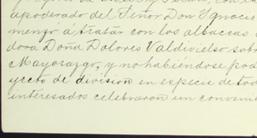 apoderado del Señor Don Ignacio
mengo a tratar con los albaceas
dora Doña Dolores Valdivielso sobre
Mayorazgo, y no habiéndose pod
yecto de división en especie de todo
interesados celebraron un conveni